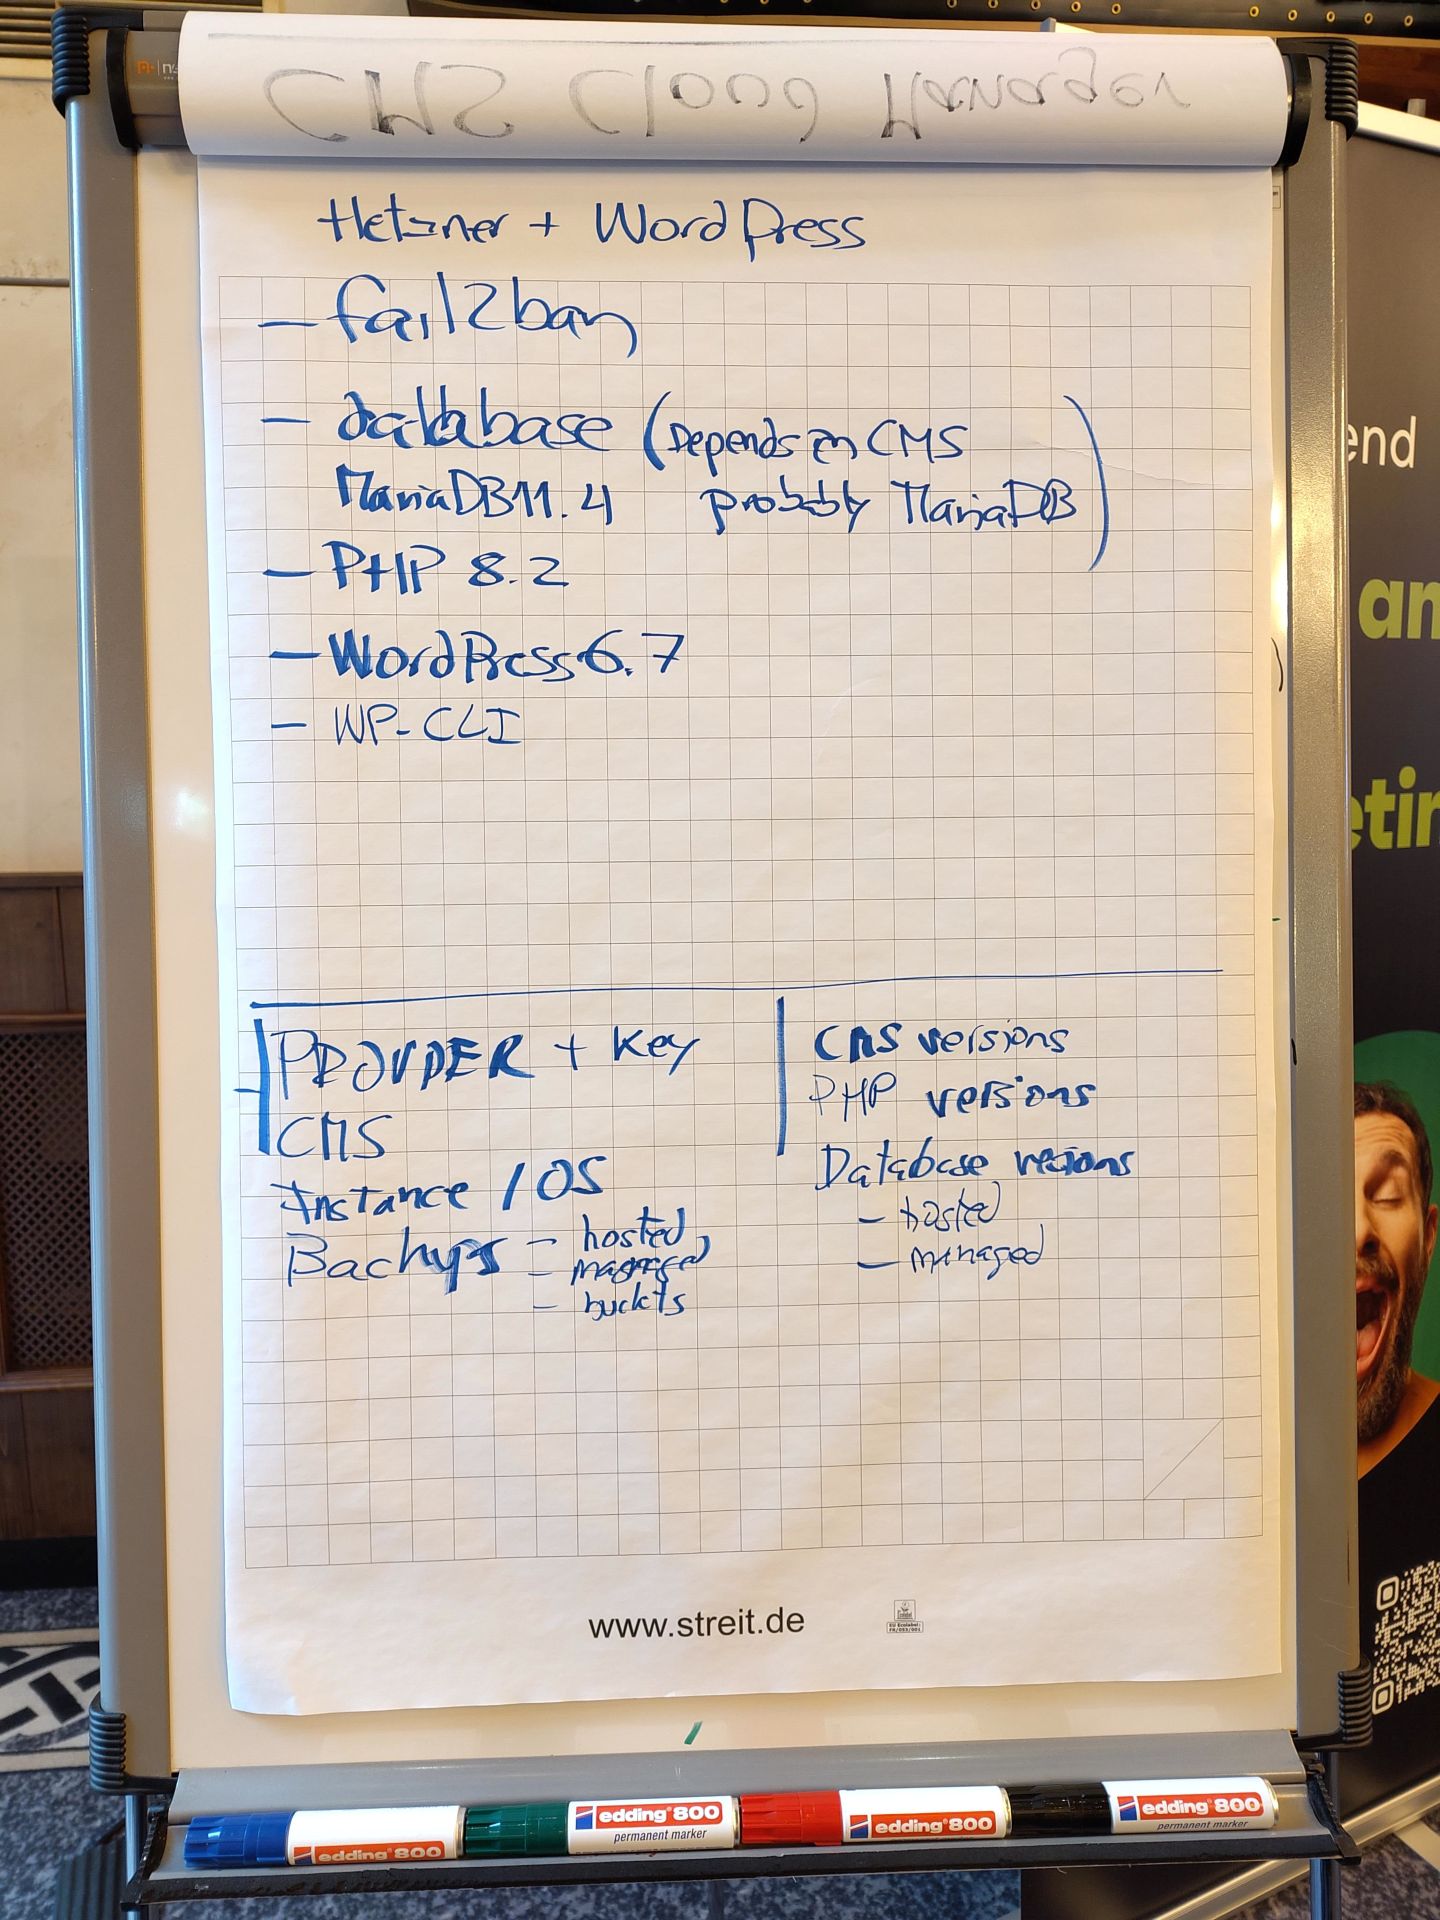 CMS Cloud Manager
Hetzner + WordPress
- fail2ban
- database (Depends on CMS
MariaDB 11.4 probably MariaDB)
- PHP 8.2
- WordPress 6.7
- WP-CLI
PROVIDER + Key
CMS
Instance / OS
Backups - hosted
- managed
- buckets
CMS versions
PHP versions
Database versions
- hosted
- managed
www.streit.de
end
an
etin
edding 800
edding 800
permanent marker
edding 800
edding 800
permanent marker